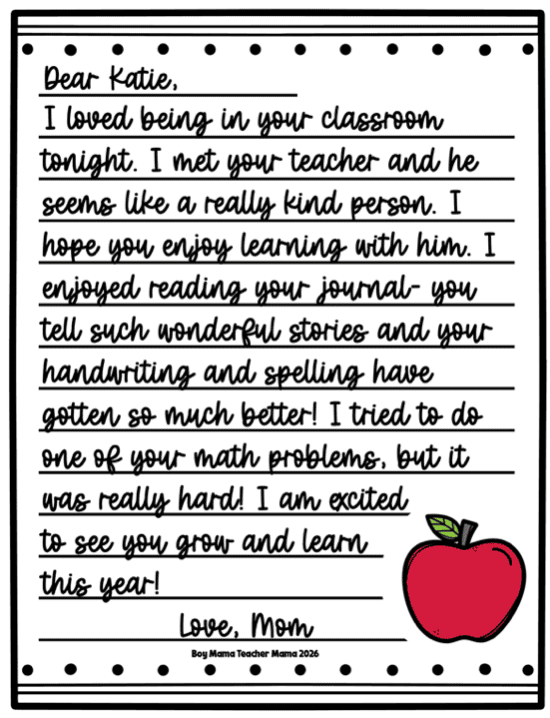 Dear Katie,
I loved being in your classroom
tonight. I met your teacher and he
seems like a really kind person. I
hope you enjoy learning with him. I
enjoyed reading your journal- you
tell such wonderful stories and your
handwriting and spelling have
gotten so much better! I tried to do
one of your math problems, but it
was really hard! I am excited
to see you grow and learn
this year!
Love, Mom
Boy Mama Teacher Mama 2026